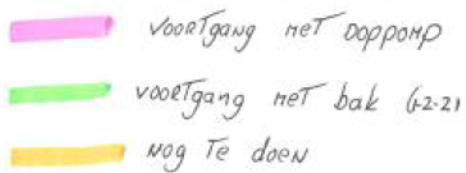 VOORTGANG MET DOPPOMP
VOORTGANG MET bak (1-2-2)
NOG TE DOEN